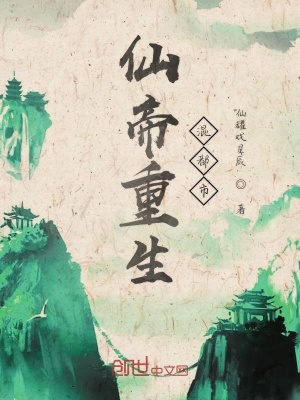 仙帝重生
混都市
仙耀戏星辰 ◎ 著
创世中文网